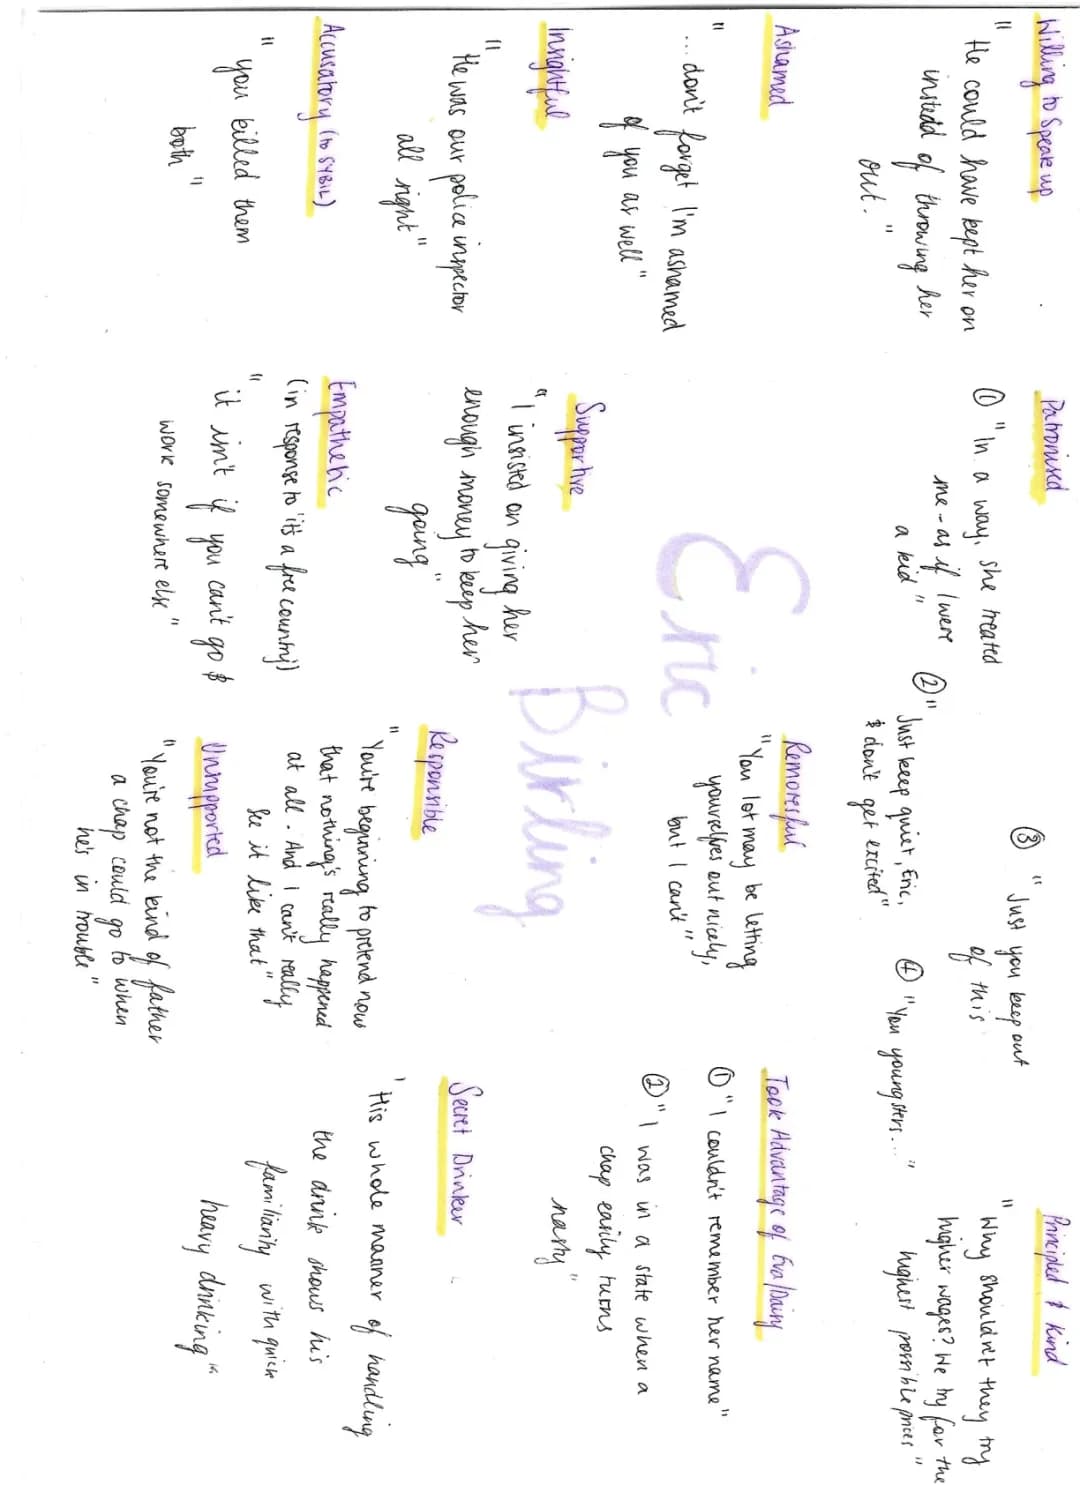 Willing to Speak up
"He could have kept her on
instead of throwing her
out."
Patronised
① "In a way, she treated
me - as if I were
a kid"
② "Just keep quiet, Eric,
& don't get excited"
③ "Just you keep out
of this
④ "You youngsters..."
Principled & Kind
"Why shouldn't they try
higher wages? We try for the
highest possible prices"
Ashamed
"...don't forget I'm ashamed
of you as well"
Eric
Birling
Remorseful
"You lot may be letting
yourselves out nicely,
but I can't"
Took Advantage of Eva/Daisy
① "I couldn't remember her name"
② "I was in a state when a
chap easily turns
nasty"
Insightful
"He was our police inspector
all right"
Supportive
"I insisted on giving her
enough money to keep her
going"
Responsible
"You're beginning to pretend now
that nothing's really happened
at all. And I can't really
see it like that"
Secret Drinker
'His whole manner of handling
the drink shows his
familiarity with quick
heavy drinking"
Accusatory (to SYBIL)
"you killed them
both"
Empathetic
(in response to 'it's a free country')
"it isn't if you can't go &
work somewhere else"
Unsupported
"You're not the kind of father
a chap could go to when
he's in trouble"